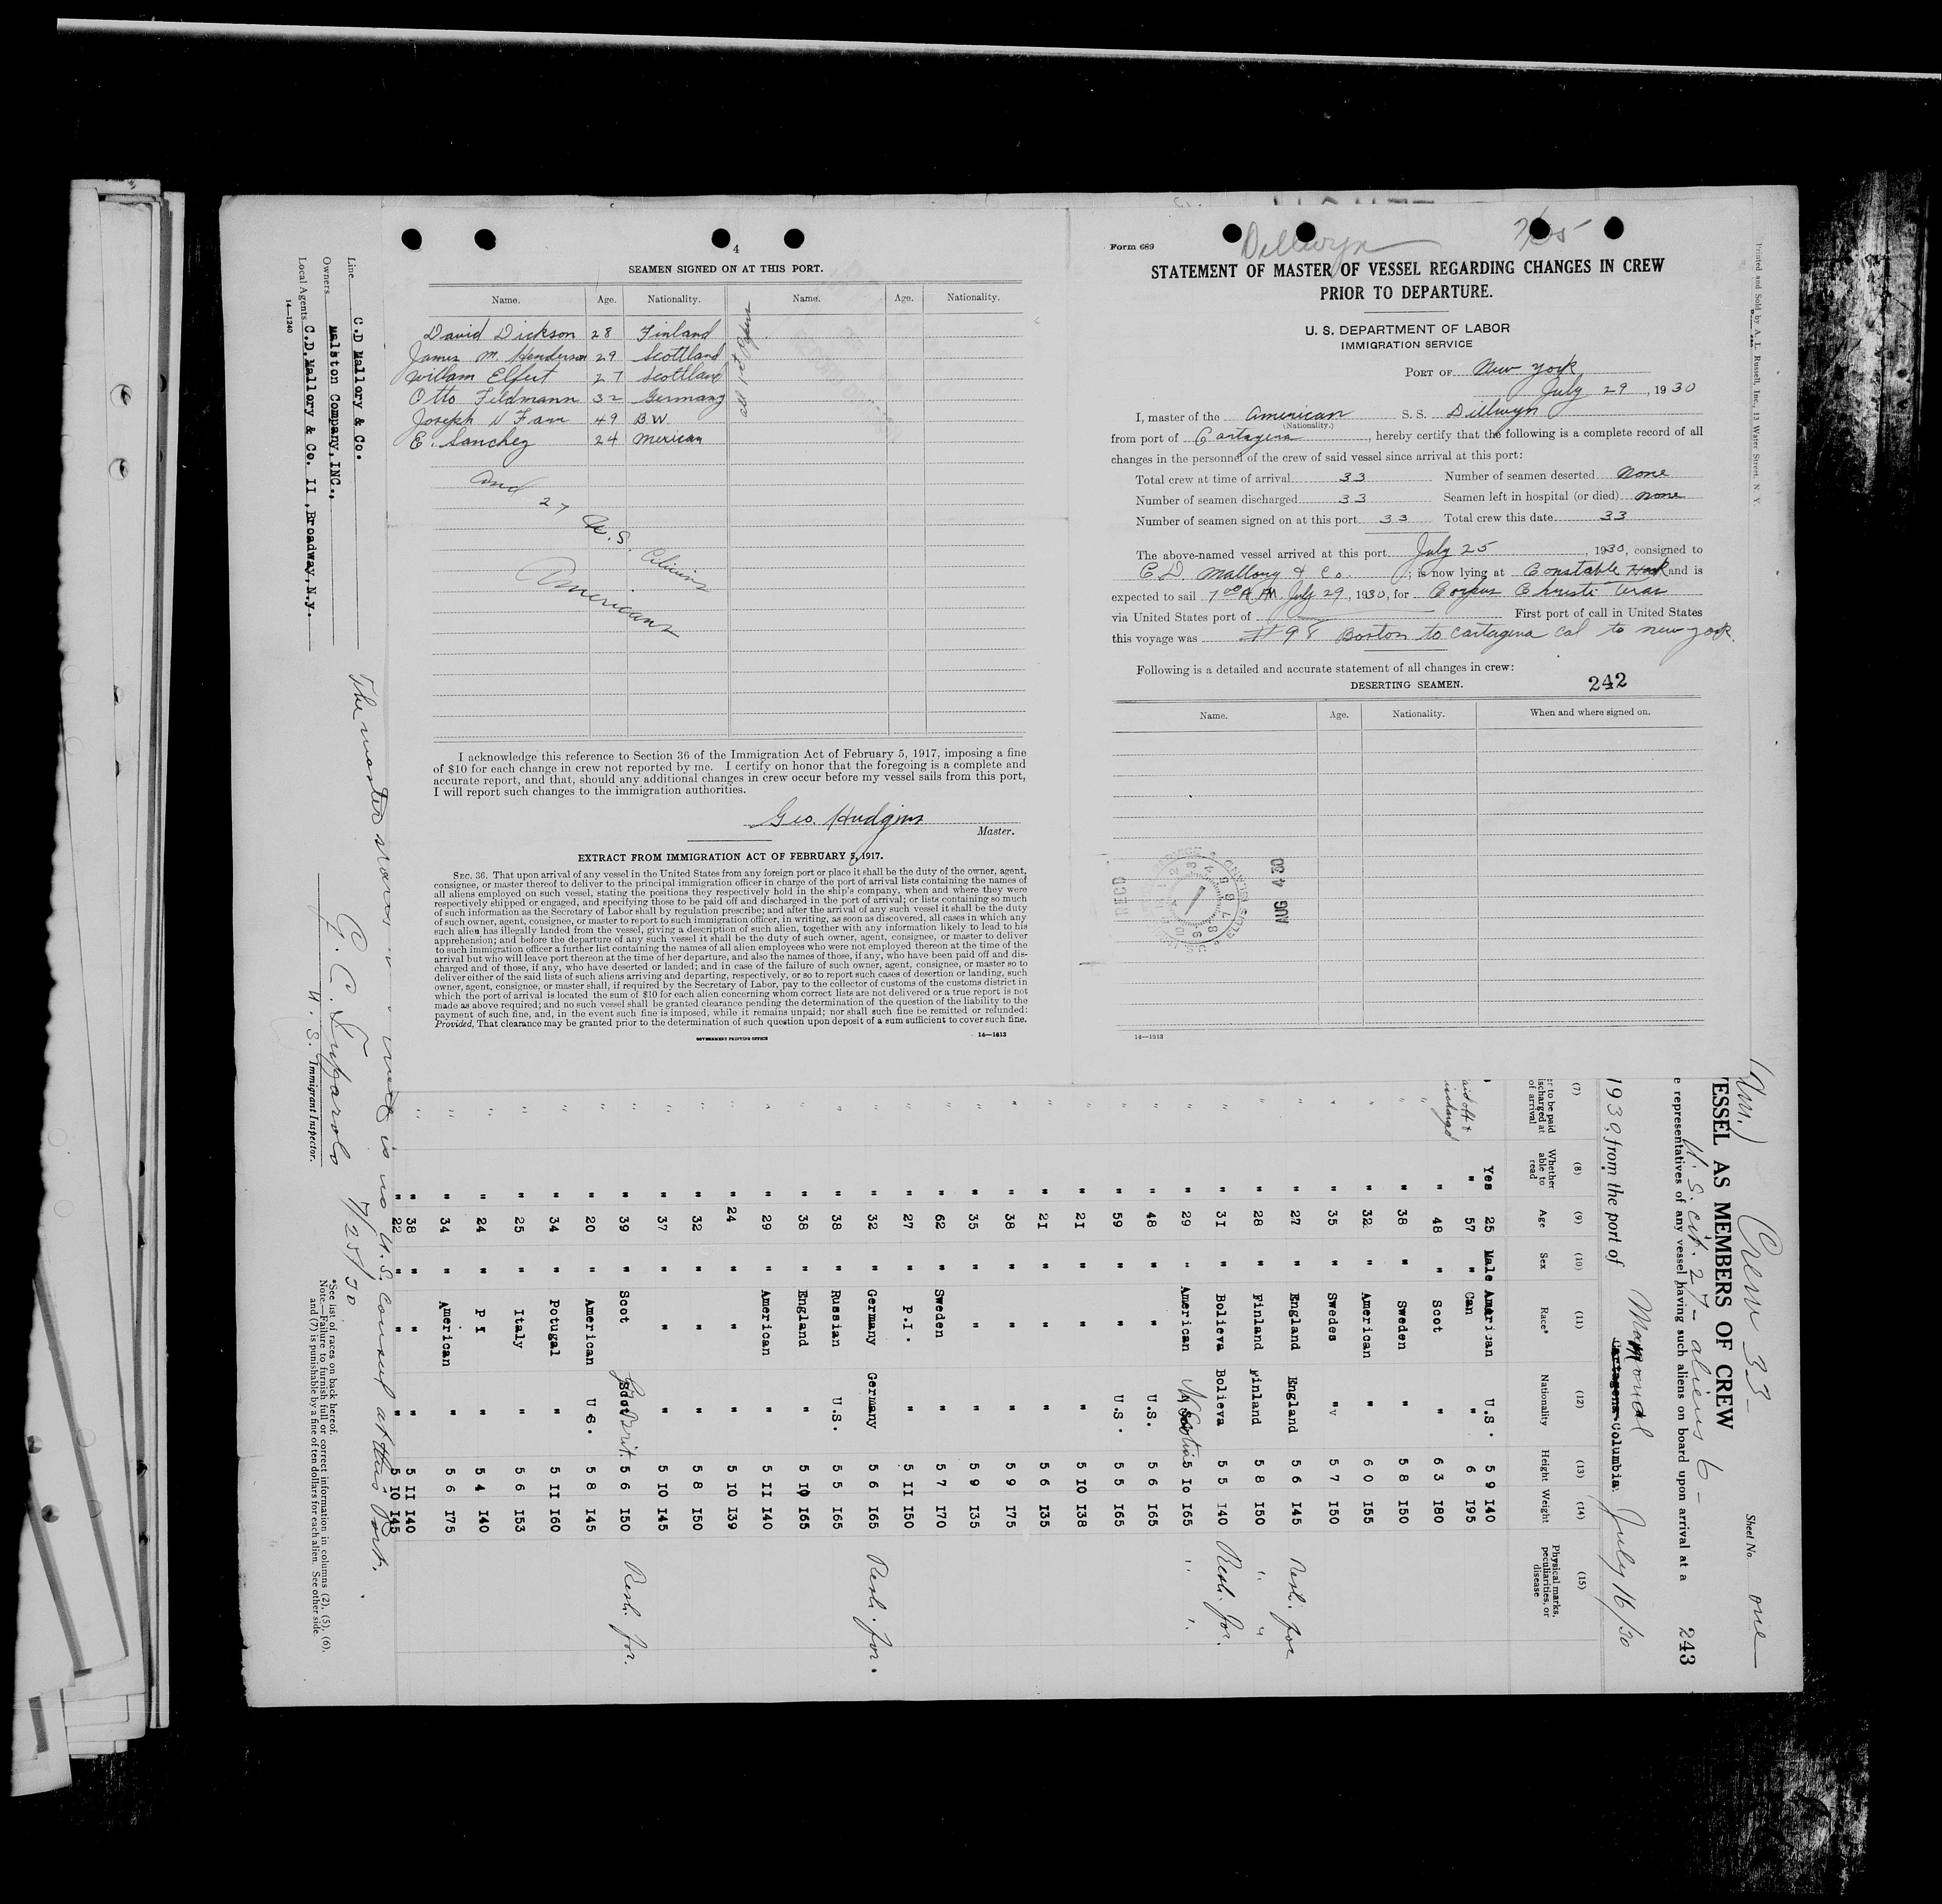 4
SEAMEN SIGNED ON AT THIS PORT.
Name. Age. Nationality. Name. Age. Nationality.
David Dickson 28 Finland
James M. Henderson 29 Scottland
William Elfert 27 Scottland
Otto Feldmann 32 Germany
Joseph N Fam 49 B.W.
E. Sanchez 24 Mexican
and
27
U.S.
Citicins
Americans
I acknowledge this reference to Section 36 of the Immigration Act of February 5, 1917, imposing a fine
of $10 for each change in crew not reported by me. I certify on honor that the foregoing is a complete and
accurate report, and that, should any additional changes in crew occur before my vessel sails from this port,
I will report such changes to the immigration authorities.
Geo. Hudgins
Master.
EXTRACT FROM IMMIGRATION ACT OF FEBRUARY 5, 1917.
SEC. 36. That upon arrival of any vessel in the United States from any foreign port or place it shall be the duty of the owner, agent,
consignee, or master thereof to deliver to the principal immigration officer in charge of the port of arrival lists containing the names of
all aliens employed on such vessel, stating the positions they respectively hold in the ship's company, when and where they were
respectively shipped or engaged, and specifying those to be paid off and discharged in the port of arrival; or lists containing so much
of such information as the Secretary of Labor shall by regulation prescribe; and after the arrival of any such vessel it shall be the duty
of such owner, agent, consignee, or master to report to such immigration officer, in writing, as soon as discovered, all cases in which any
such alien has illegally landed from the vessel, giving a description of such alien, together with any information likely to lead to his
apprehension; and before the departure of any such vessel it shall be the duty of such owner, agent, consignee, or master to deliver
to such immigration officer a further list containing the names of all alien employees who were not employed thereon at the time of the
arrival but who will leave port thereon at the time of her departure, and also the names of those, if any, who have been paid off and dis-
charged and of those, if any, who have deserted or landed; and in case of the failure of such owner, agent, consignee, or master so to
deliver either of the said lists of such aliens arriving and departing, respectively, or so to report such cases of desertion or landing, such
owner, agent, consignee, or master shall, if required by the Secretary of Labor, pay to the collector of customs of the customs district in
which the port of arrival is located the sum of $10 for each alien concerning whom correct lists are not delivered or a true report is not
made as above required; and no such vessel shall be granted clearance pending the determination of the question of the liability to the
payment of such fine, and, in the event such fine is imposed, while it remains unpaid; nor shall such fine be remitted or refunded:
Provided, That clearance may be granted prior to the determination of such question upon deposit of a sum sufficient to cover such fine.
GOVERNMENT PRINTING OFFICE
14—1613
Form 689
Dillwyn
7/25
STATEMENT OF MASTER OF VESSEL REGARDING CHANGES IN CREW
PRIOR TO DEPARTURE.
U. S. DEPARTMENT OF LABOR
IMMIGRATION SERVICE
PORT OF New York
July 29, 1930
I, master of the American S. S. Dillwyn
(Nationality.)
from port of Cartagena, hereby certify that the following is a complete record of all
changes in the personnel of the crew of said vessel since arrival at this port:
Total crew at time of arrival 33 Number of seamen deserted None
Number of seamen discharged 33 Seamen left in hospital (or died) none
Number of seamen signed on at this port 33 Total crew this date 33
The above-named vessel arrived at this port July 25, 1930, consigned to
C.D. Mallory & Co.; is now lying at Constable Hook and is
expected to sail 7 00 A.M. July 29, 1930, for Corpus Christi Texas
via United States port of First port of call in United States
this voyage was #98 Boston to Cartagena Col to new york.
Following is a detailed and accurate statement of all changes in crew:
DESERTING SEAMEN. 242
Name. Age. Nationality. When and where signed on.
RECD
AUG 4 30
14—1613
Printed and Sold by A. L. Russell, Inc., 13 Water Street, N. Y.
Crew 33 -
U.S. cit. 27 - aliens 6 -
Sheet No. one
ESSEL AS MEMBERS OF CREW
e representatives of any vessel having such aliens on board upon arrival at a
243
1930, from the port of Mamonal Cartagena Columbia. July 16/30
(7) (8) (9) (10) (11) (12) (13) (14) (15)
er to be paid ischarged at of arrival Whether able to read Age Sex Race* Nationality Height Weight Physical marks, peculiarities, or disease
Yes 25 Male American U.S. 5 9 140
aid off & ischarged " 57 " Can " 6 195
" 48 " Scot " 6 3 180
" 38 " Sweden " 5 8 150
" 32 " American " 6 0 155
" 35 " Swedes " 5 7 150
" 27 " England England 5 6 145 Resh. for
" 28 " Finland Finland 5 8 150 " "
" 31 " Bolieva Bolieva 5 5 140 Resh. for.
" 29 " American 5 10 165 " "
" 48 " " U.S. 5 6 165
" 59 " " U.S. 5 5 165
" 21 " " " 5 10 138
" 21 " " " 5 6 135
" 38 " " " 5 9 175
" 35 " " " 5 9 135
" 62 " Sweden " 5 7 170
" 27 " P.I. " 5 11 150
" 32 " Germany Germany 5 6 165 Resh. for.
" 38 " Russian U.S. 5 5 165
" 38 " England " 5 10 165
" 29 " American " 5 11 140
" 24 " " " 5 10 139
" 32 " " " 5 8 150
" 37 " " " 5 10 145
" 39 " Scot Scot Gr. Brit. 5 6 150 Resh. for.
" 20 " American U.S. 5 8 145
" 34 " Potugal " 5 11 160
" 25 " Italy " 5 6 153
" 24 " P I " 5 4 140
" 34 " American " 5 6 175
" 38 " " " 5 11 140
" 22 " " " 5 10 145
The master states is no U.S. Consul at this Port.
Line C.D Mallory & Co.
Owners Malston Company, INC.,
Local Agents C.D.Mallory & Co. II, Broadway, N.y.
14—1240
7/25/30
U. S. Immigrant Inspector.
*See list of races on back hereof.
Note.—Failure to furnish full or correct information in columns (2), (5), (6),
and (7) is punishable by a fine of ten dollars for each alien. See other side.